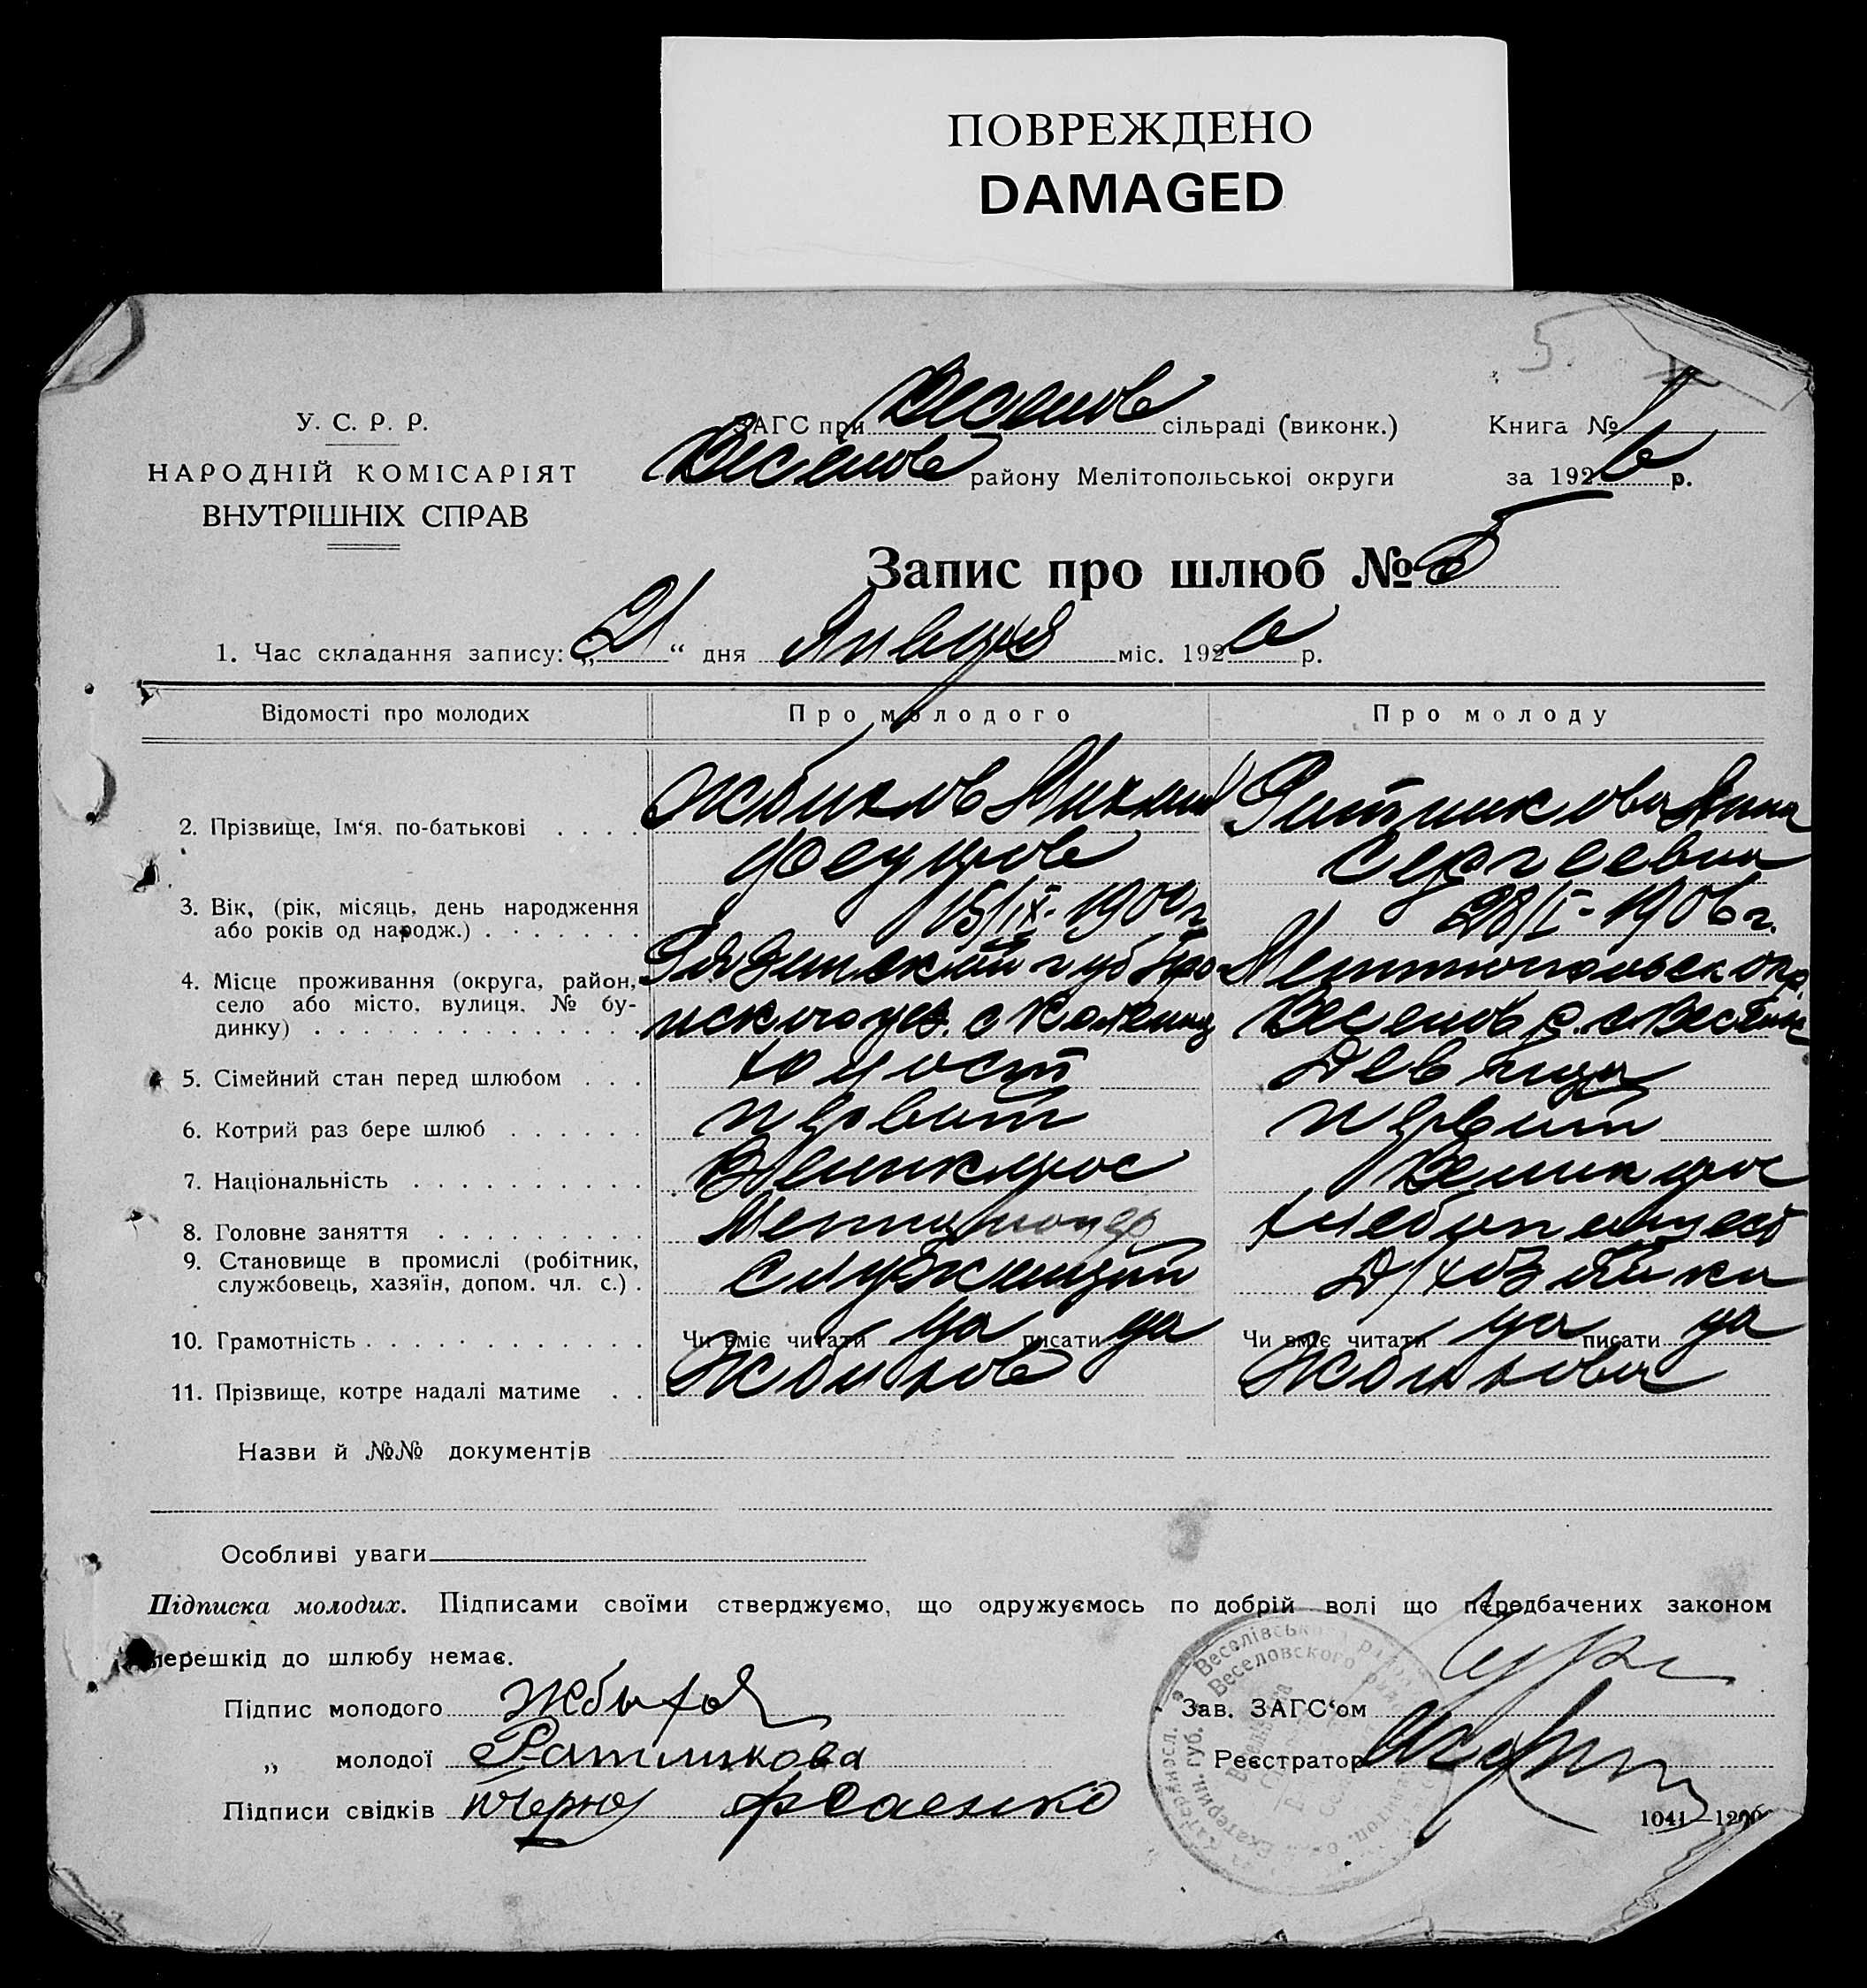 ПОВРЕЖДЕНО
DAMAGED
5.
У. С. Р. Р.
НАРОДНІЙ КОМІСАРІЯТ
ВНУТРІШНІХ СПРАВ
ЗАГС при Веселов сільраді (виконк.)
Веселов району Мелітопольської округи
Книга №
за 1926 р.
Запис про шлюб № 5
1. Час складання запису: „21“ дня Января міс. 1926 р.
Відомості про молодих Про молодого Про молоду
2. Прізвище, Ім‘я, по-батькові . . . . Жбиков Михаил Анна
Федоров Сергеевна
3. Вік, (рік, місяць, день народження
або років од народж.) . . . . . . . 15/IX-1900 г. 28/I-1906 г.
4. Місце проживання (округа, район,
село або місто, вулиця, № бу-
динку) . . . . . . . . . . . . . .
Рязанской губ Про Мелитопольск окр.
нского уез. с Веселов р. с Веселое
5. Сімейний стан перед шлюбом . . . холост Девица
6. Котрий раз бере шлюб . . . . . . первый первый
7. Національність . . . . . . . . . . Великорос Великорос
8. Головне заняття . . . . . . . . . Милиционер хлебопашест
9. Становище в промислі (робітник,
службовець, хазяїн, допом. чл. с.) . служащий Д/хозяйка
10. Грамотність . . . . . . . . . . . . Чи вміє читати да писати да Чи вміє читати да писати да
11. Прізвище, котре надалі матиме . . Жбиков Жбикова
Назви й №№ документів
Особливі уваги
Підписка молодих. Підписами своїми стверджуємо, що одружуємось по добрій волі що передбачених законом
перешкід до шлюбу немає.
Підпис молодого Жбиков
„ молодої Ратникова
Підписи свідків
Зав. ЗАГС‘ом
Реєстратор
1041—1200